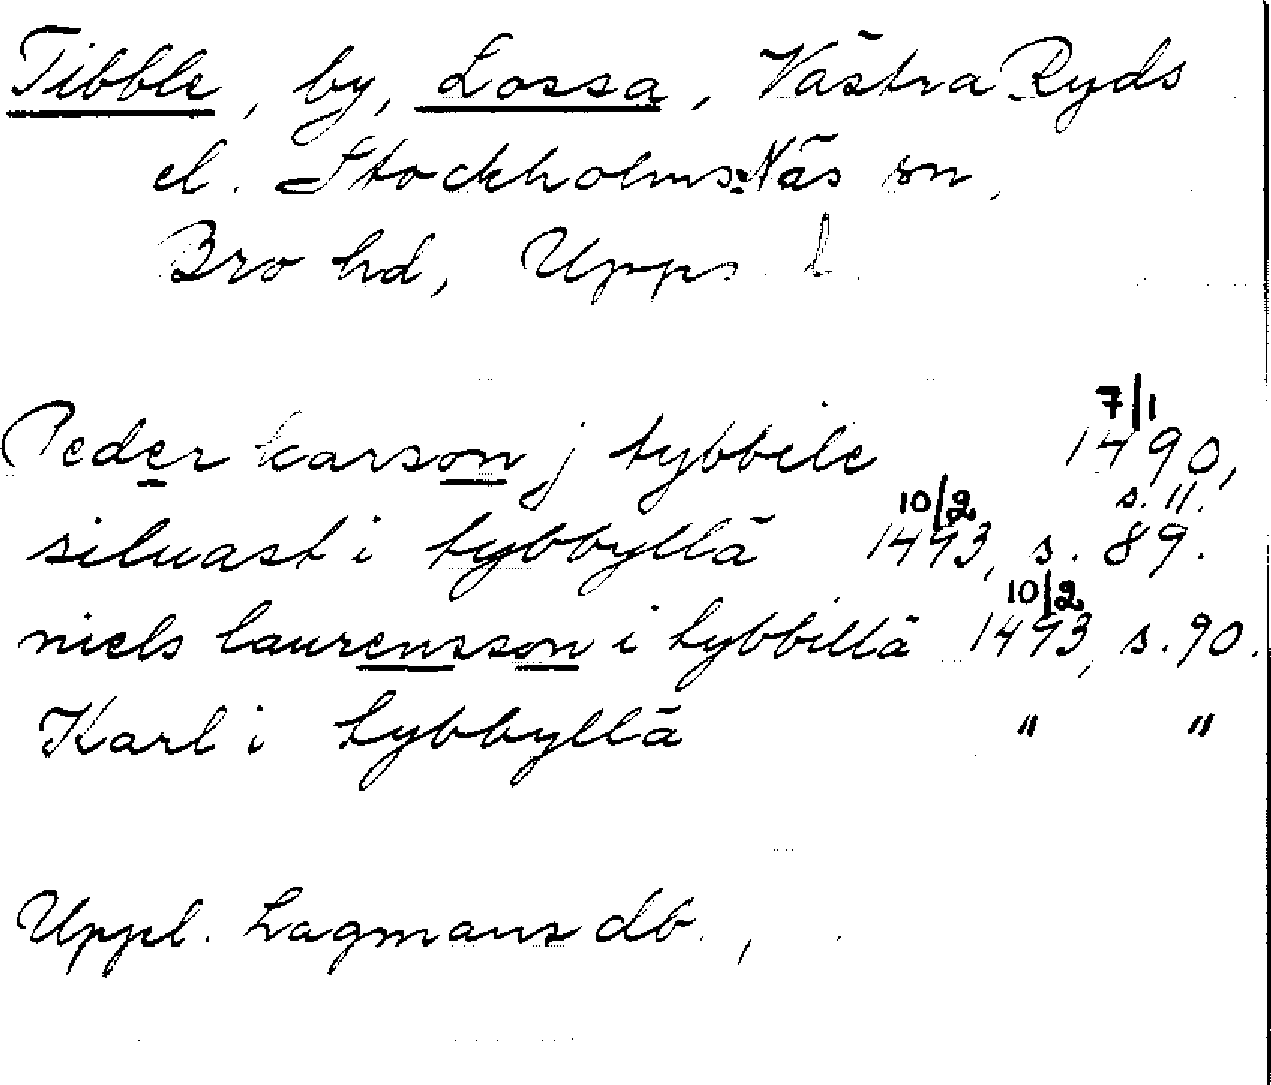 Tibble, by, Lossa, Västra Ryds
el. Stockholms-Näs sn,
Bro hd, Upps. l.
Peder karson j tybbile 7/1 1490, s. 11.
siluast i tybbyllä 10/2 1493, s. 89.
niels laurensson i tybbillä 10/2 1493, s. 90.
Karl i tybbyllä " "
Uppl. Lagmans db.,